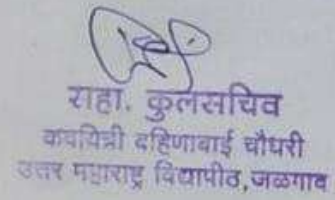 सहा. कुलसचिव
कवयित्री बहिणाबाई चौधरी
उत्तर महाराष्ट्र विद्यापीठ, जळगाव